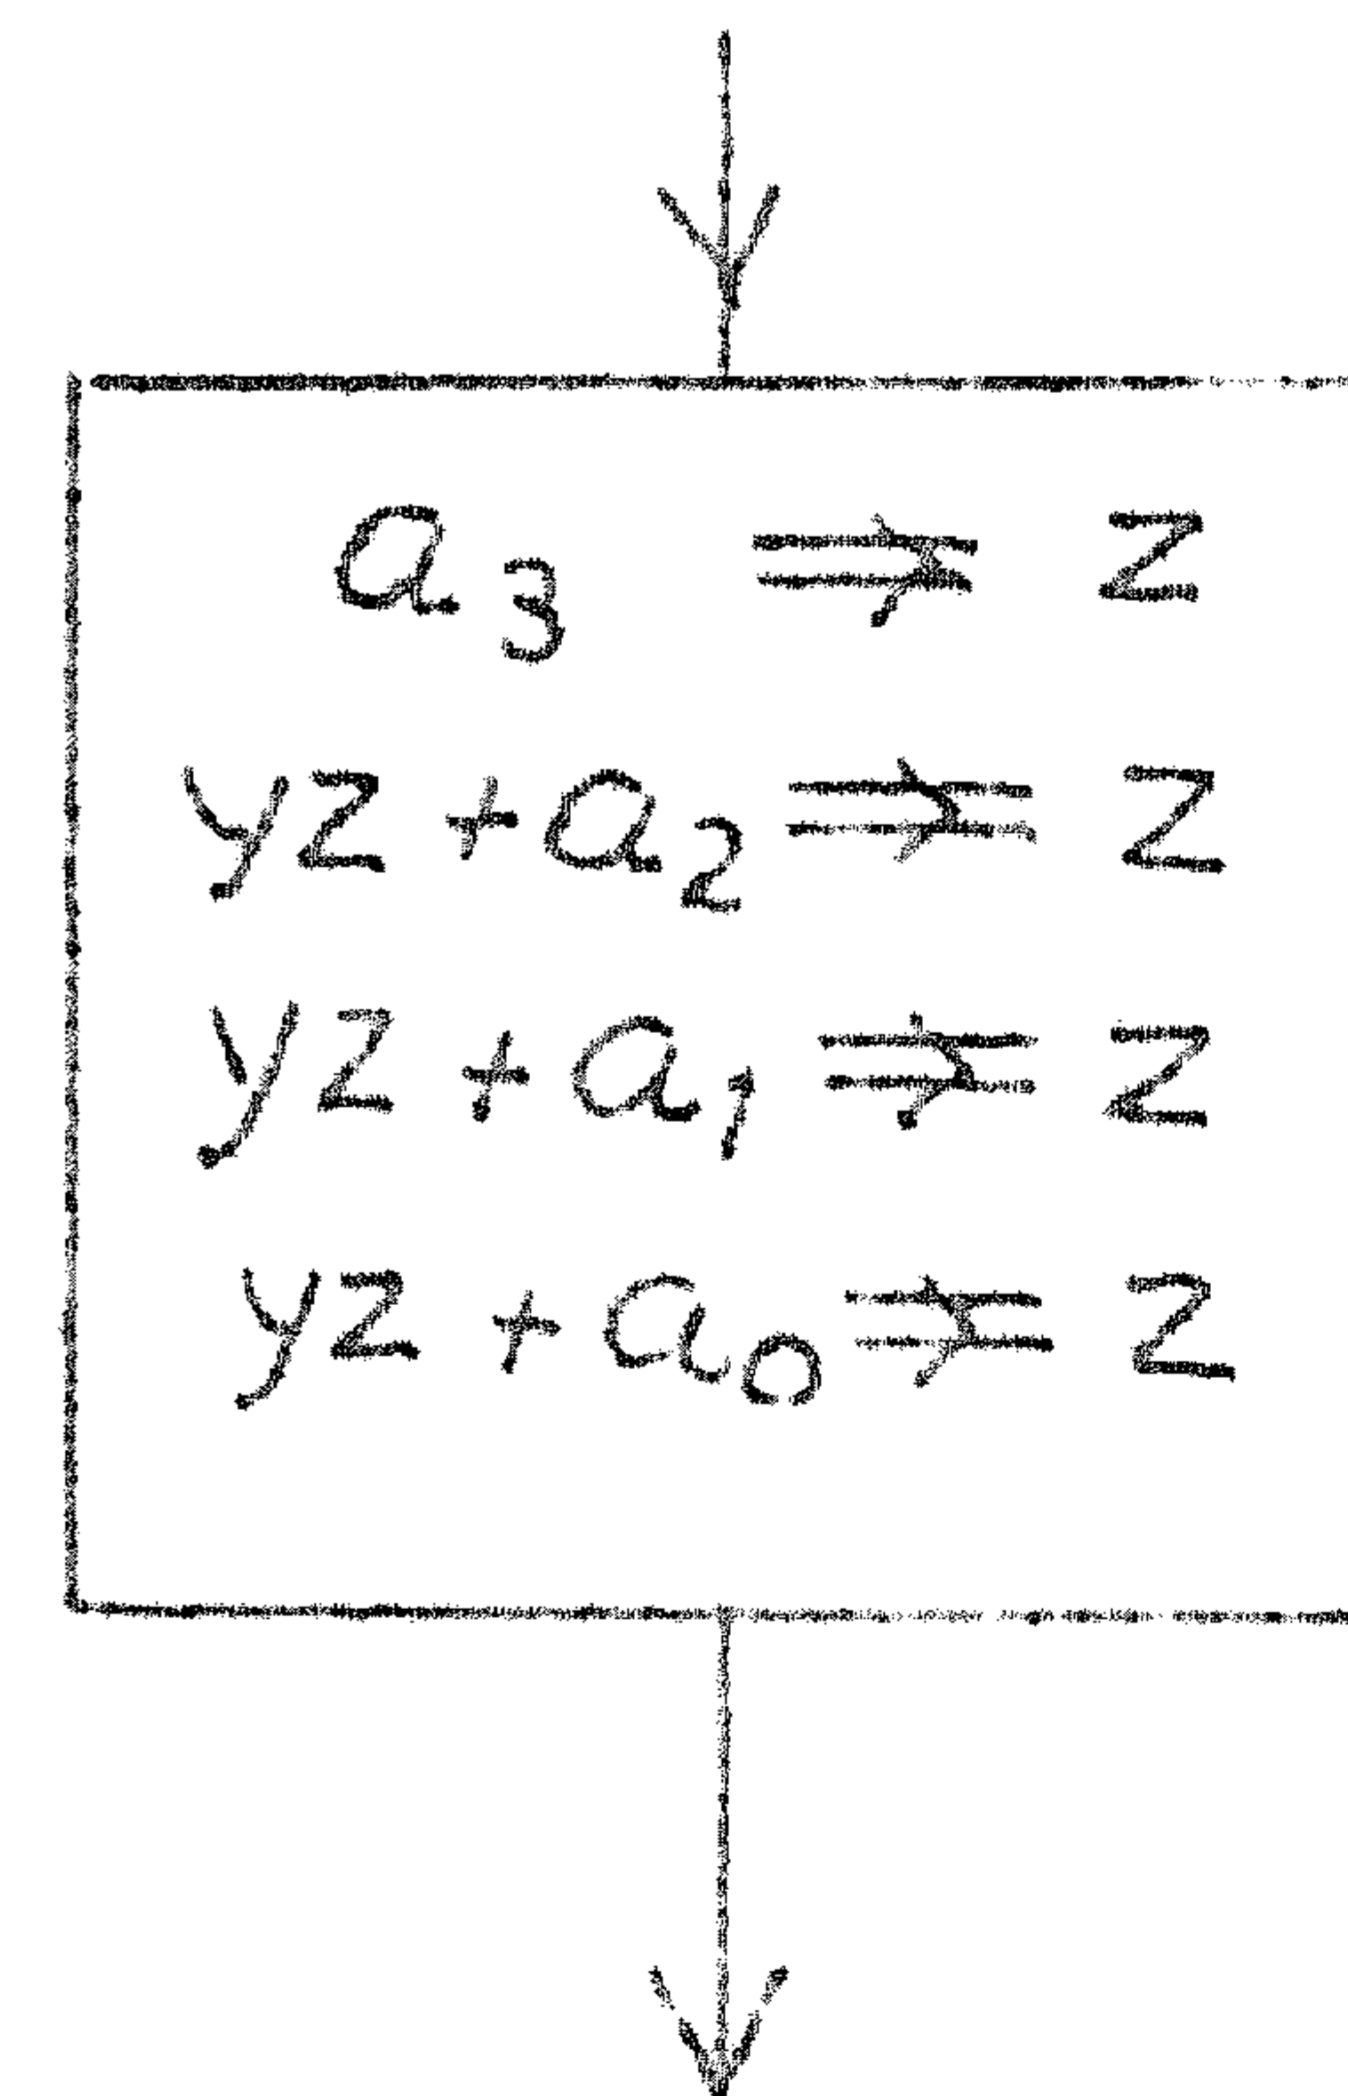 a₃ ⇒ z
yz + a₂ ⇒ z
yz + a₁ ⇒ z
yz + a₀ ⇒ z